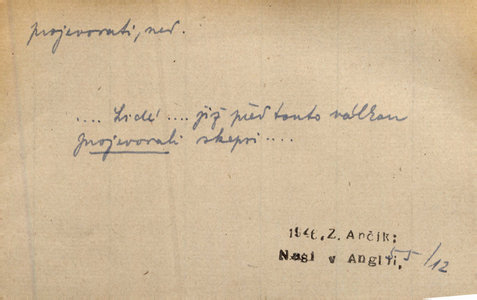 projevovati, ned.
.... Lidé .... již před touto válkou
projevovali skepsi ....
1946, Z. Ančík:
Naši v Anglii, 55/12